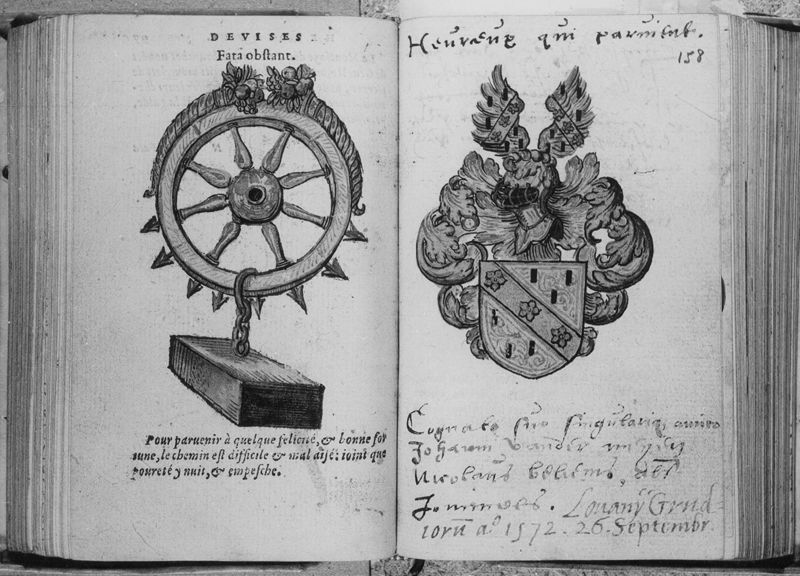 DEVISES
Fata obstant.
Pour paruenir à quelque felicité, & bonne for
tune, le chemin est difficile & mal aisé: ioint que
poureté y nuit, & empesche.
Heureux qui parvient.
158
Cognato suo singulariq; amico
Johanni vander
Nicolaus
Louanij Grud=
iorū aº 1572. 26. Septembr.